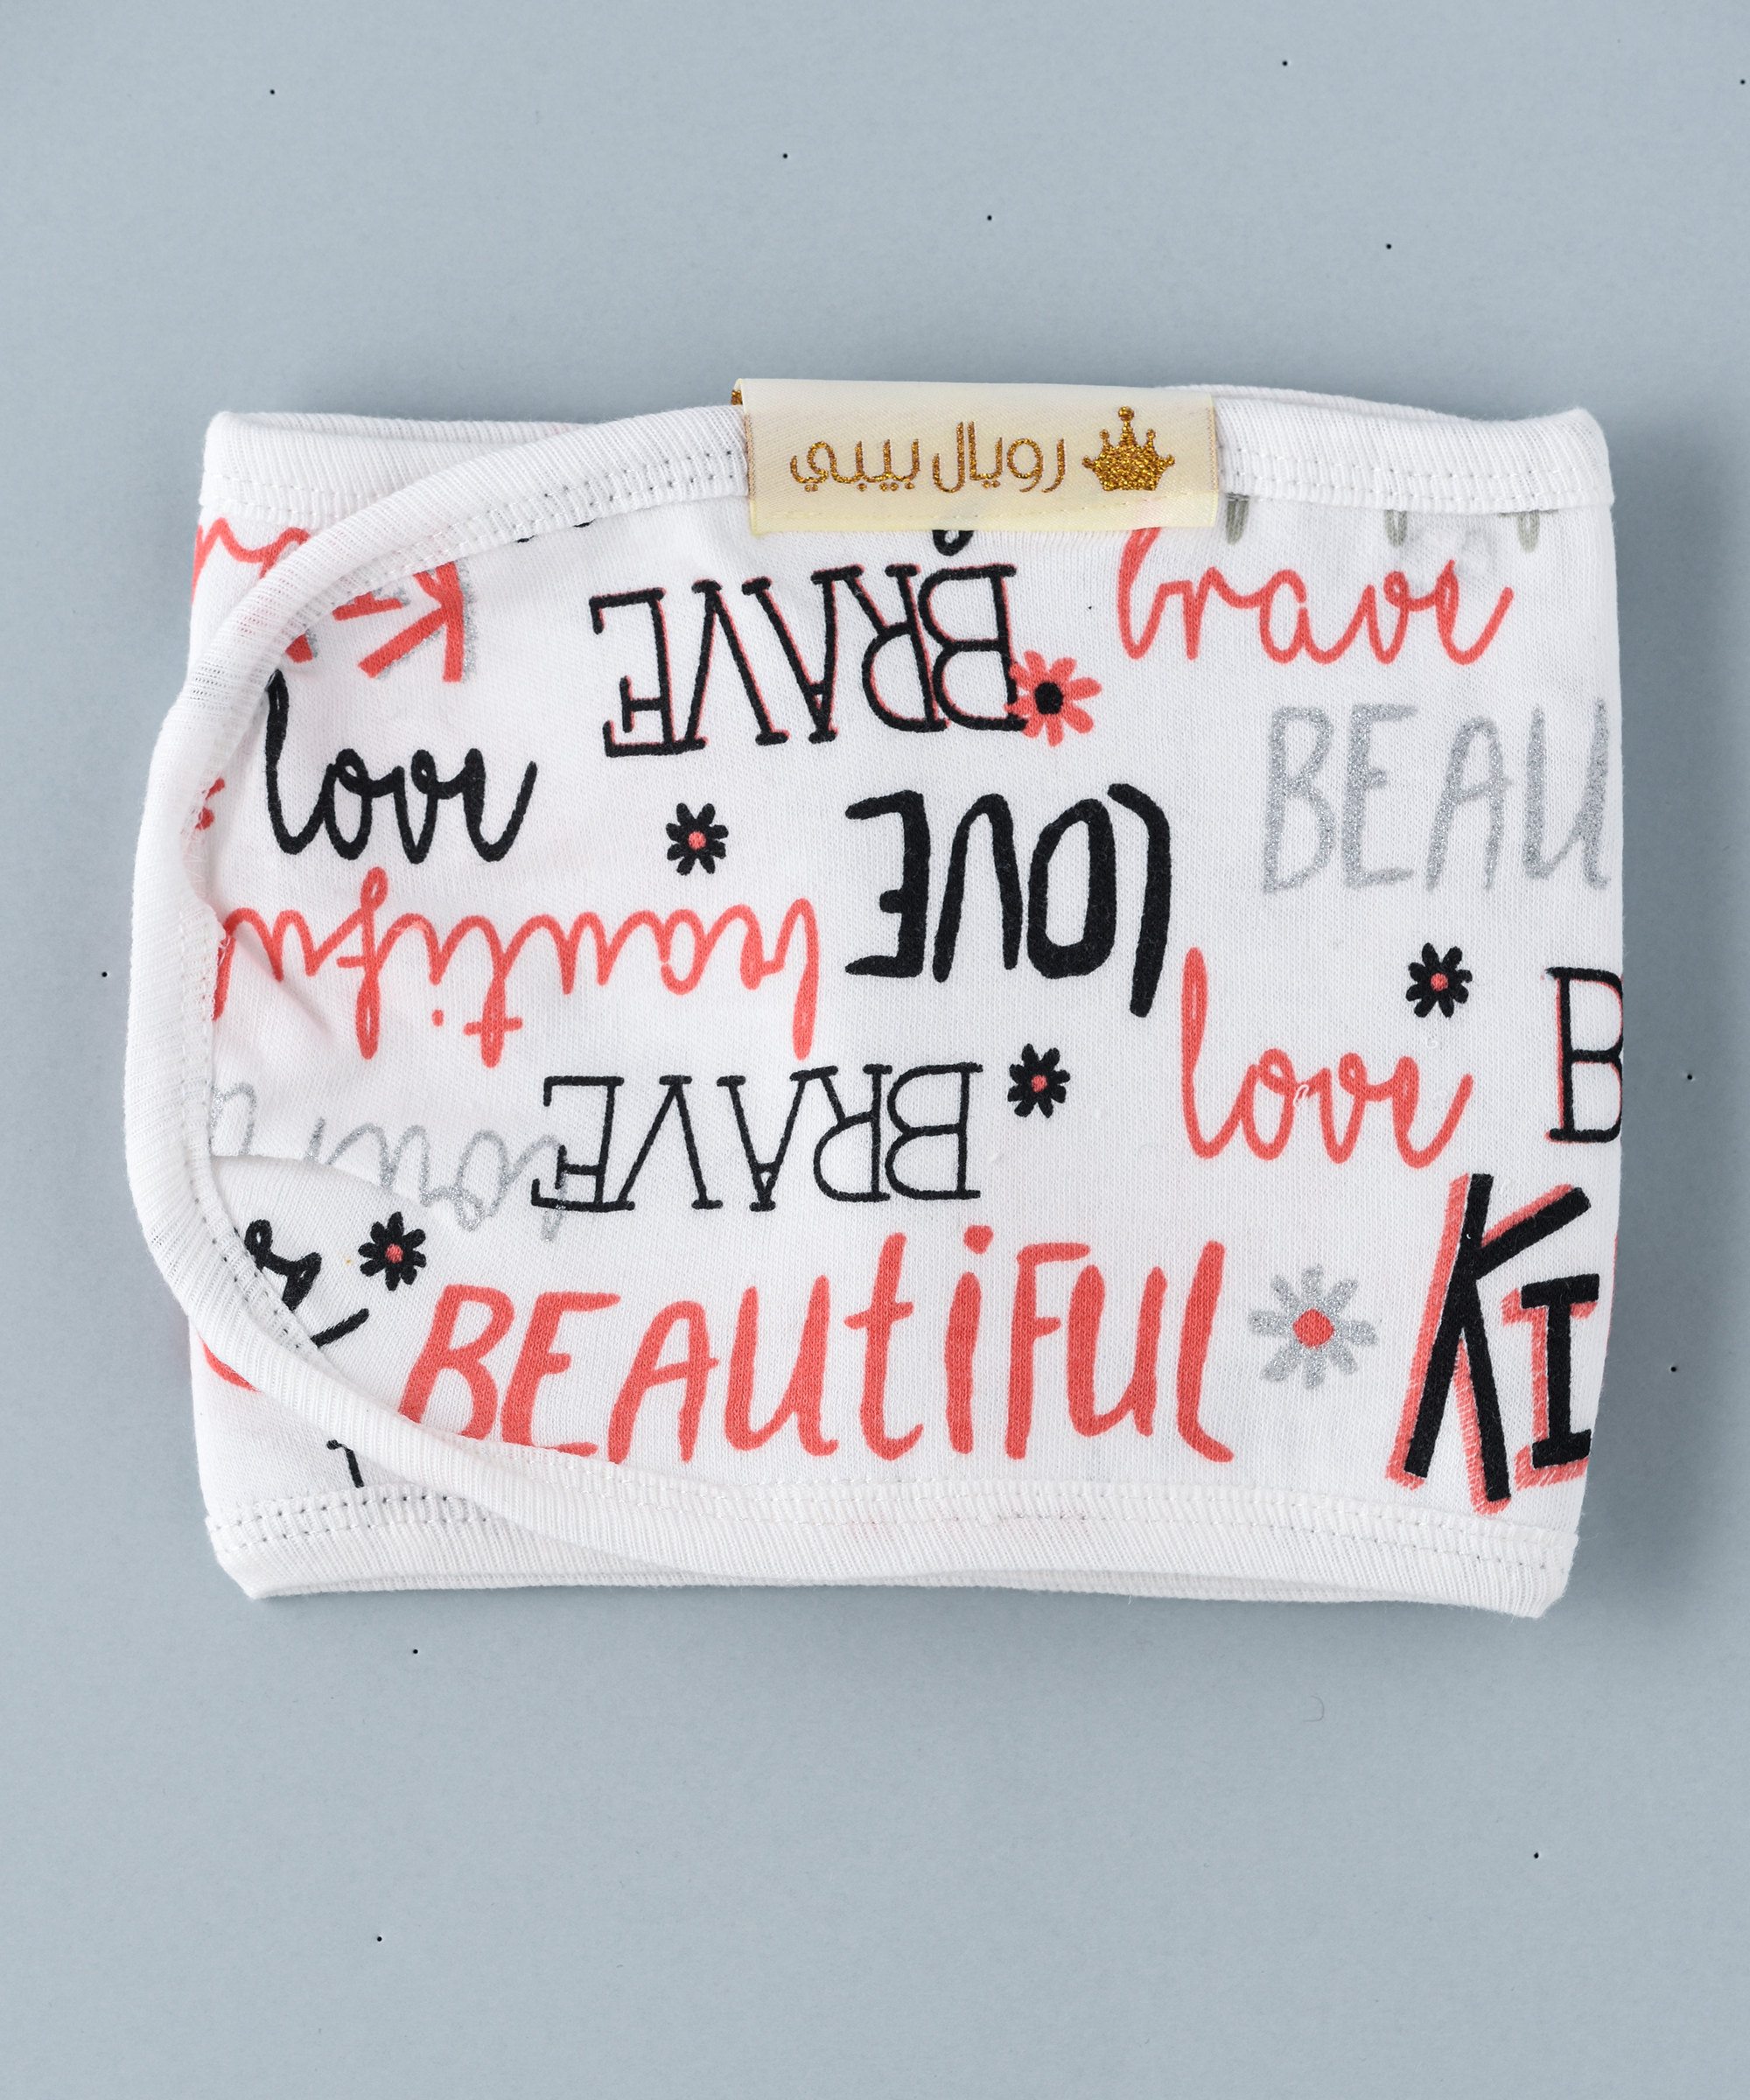 رويال بيبي
brave
BRAVE
BEAU
love
LOVE
beautifu
love
B
BRAVE
BEAUtiFUL
KI